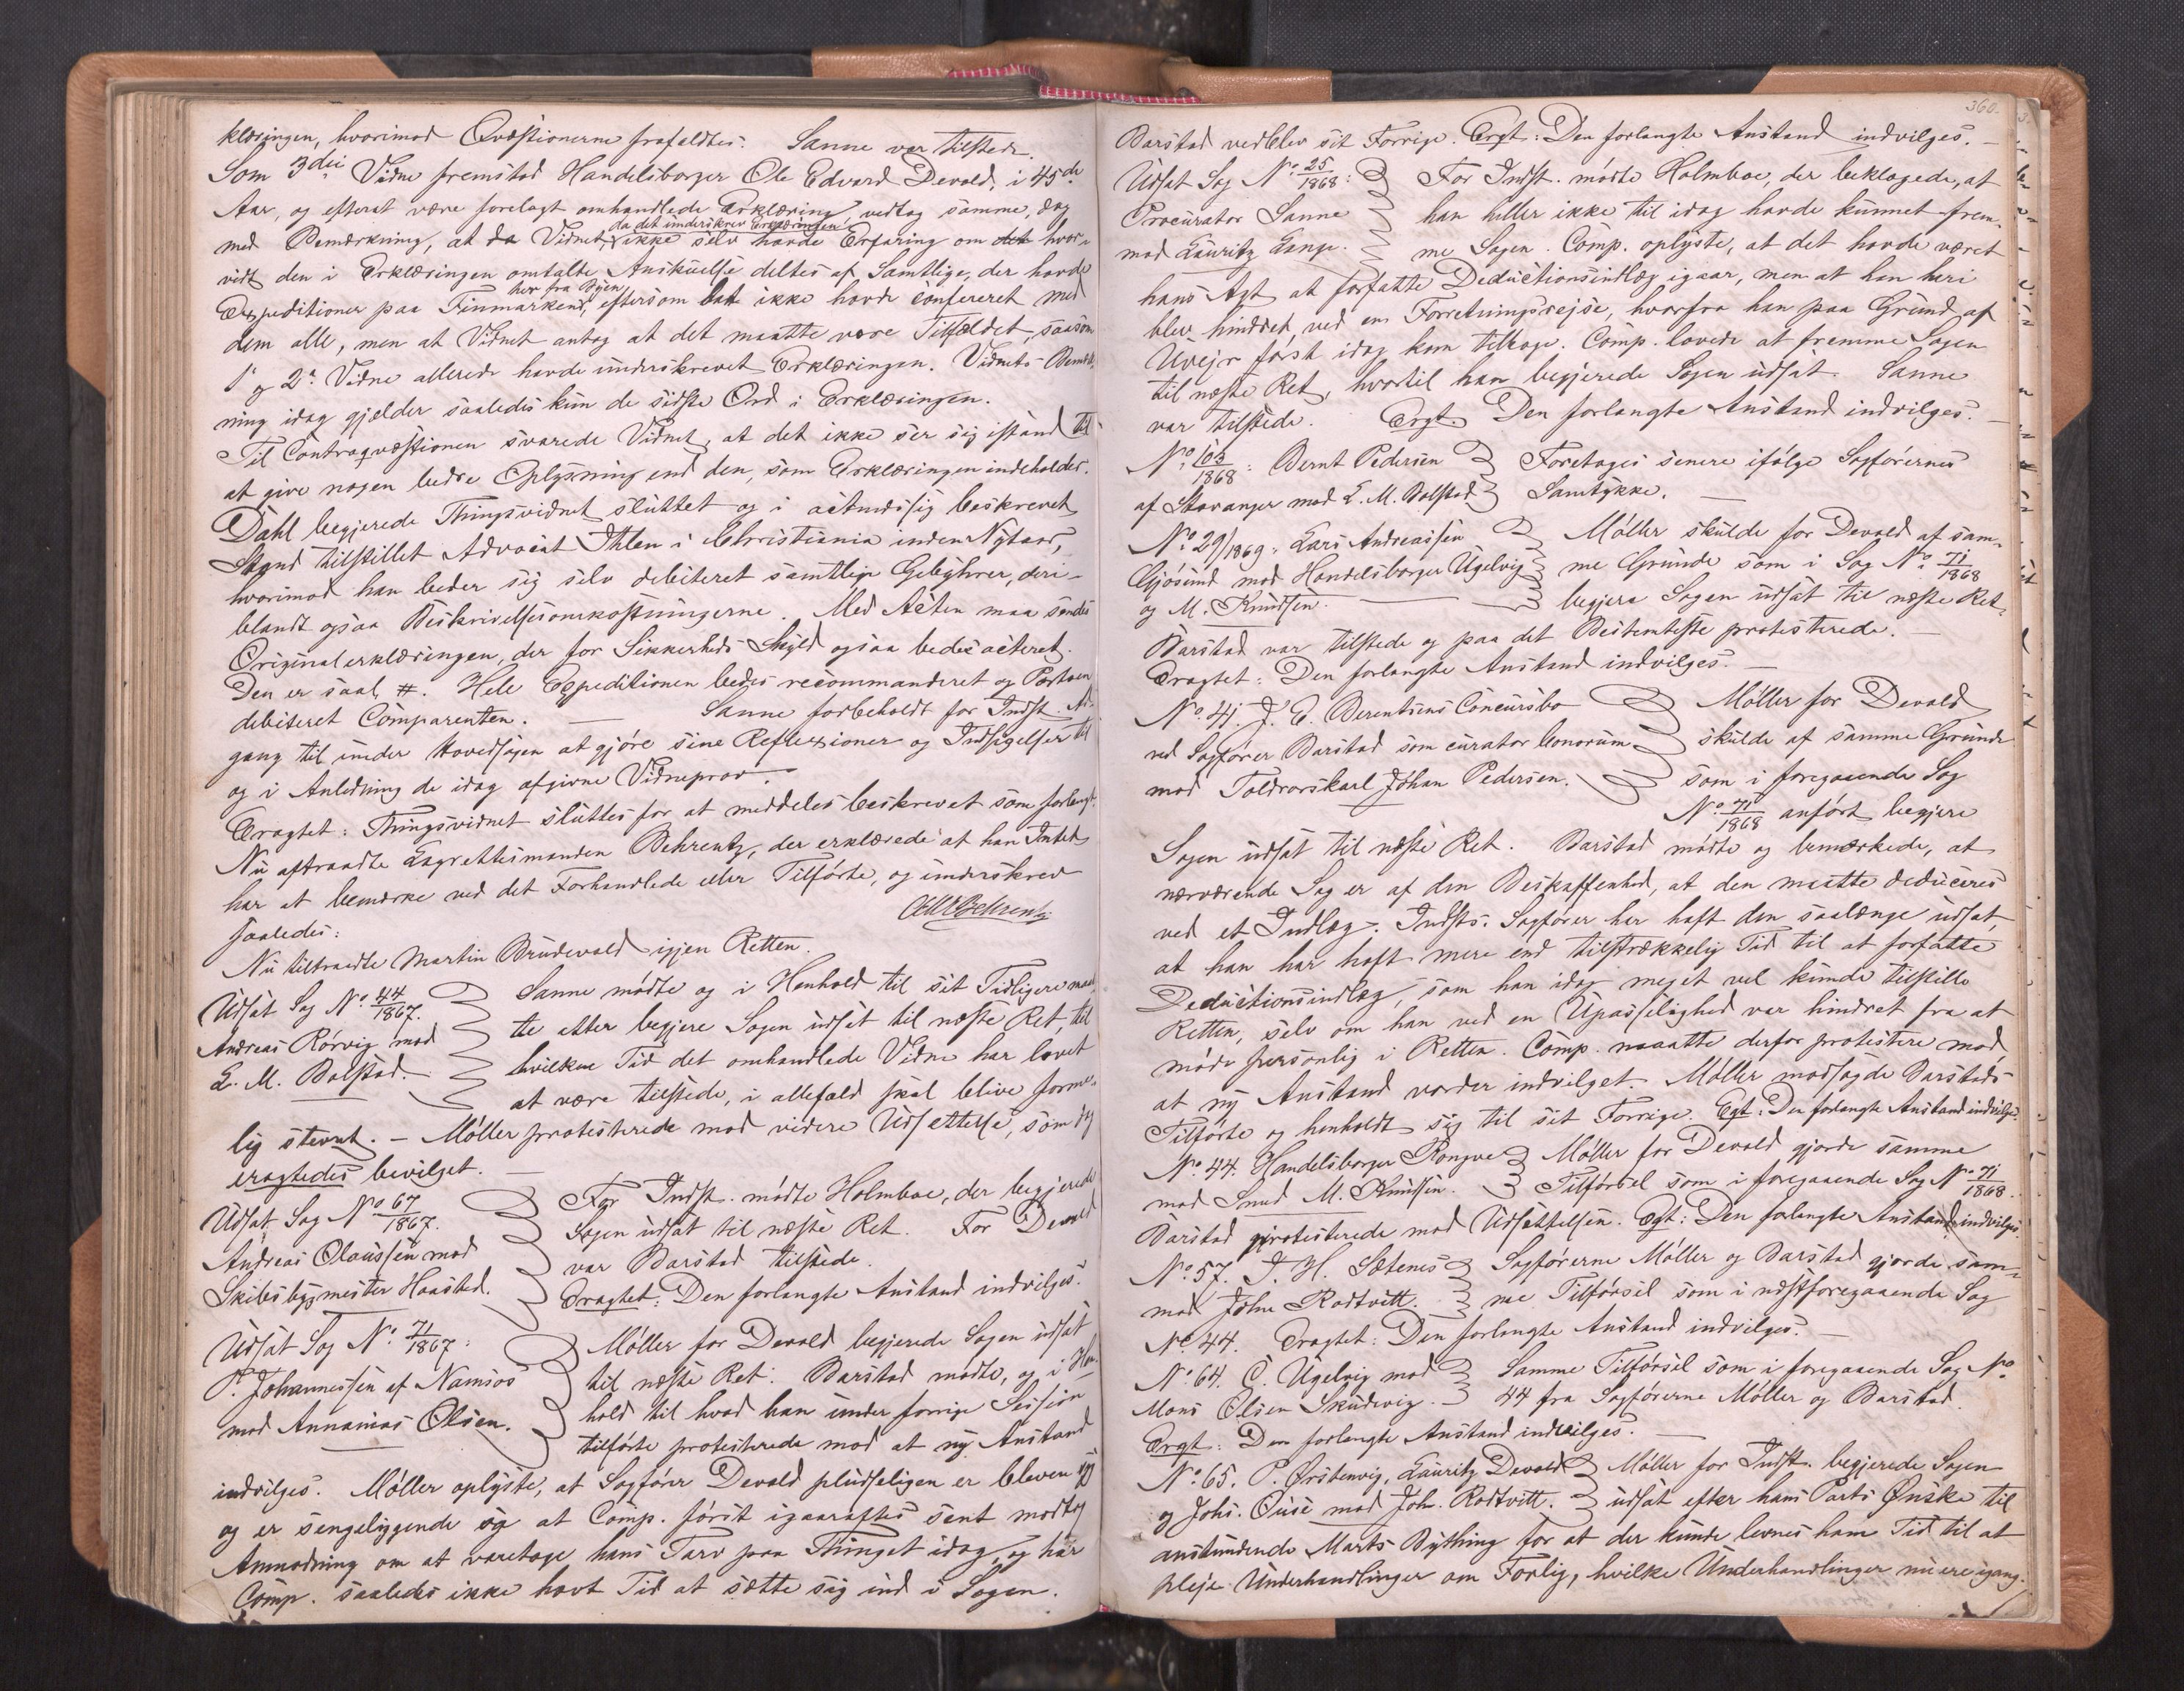 klæringen, hvorimod Qvæstionerne frafaldtes. Sanne var tilstede.
Som 3die Vidne fremstod Handelsborger Ole Edvard Devold, i 45de
Aar, og efterat være forelagt omhandlede Erklæring, vedtog samme, dog
da det underskrev Erklæringen
med Bemærkning, at da Vidnet, ikke selv havde Erfaring om det hvor-
vidt den i Erklæringen omtalte Anskuelse deltes af Samtlige, der havde
her fra Byen
Expeditioner paa Finmarken, eftersom det ikke havde confereret med
dem alle, men at Vidnet antog at det maatte være Tilfældet, saasom
1ste og 2det Vidne allerede havde underskrevet Erklæringen. Vidnets Bemærk-
ning idag gjælder saaledes kun de sidste Ord i Erklæringen.
Til Contraqvæstionen svarede Vidnet, at det ikke ser sig istand til
at give nogen bedre Oplysning end den, som Erklæringen indeholder.
Dahl begjerede Thingsvidnet sluttet og i actmæssig beskrevet
Stand tilstillet Advocat Ihlen i Christiania inden Nytaar,
hvorimod han beder sig selv debiteret samtlige Gebyhrer, deri-
blandt ogsaa Beskrivelsesomkostningerne. Med Acten maa sendes
Originalerklæringen, der for Sikkerheds Skyld ogsaa bedes acteret.
Den er saal. #. Hele Expeditionen bedes recommanderet og Portoen
debiteret Comparenten. — Sanne forbeholdt for Indst. Ad-
gang til under Hovedsagen at gjøre sine Reflexioner og Indsigelser til
og i Anledning de idag afgivne Vidneprov.
Eragtet: Thingsvidnet sluttes for at meddeles beskrevet som forlangt.
Nu aftraadte Lagrettesmanden Behrentz, der erklærede at han Intet
har at bemærke ved det Forhandlede eller Tilførte, og underskrev
saaledes:
Behrentz
Nu tiltraadte Martin Brudevold igjen Retten.
Udsat Sag No. 44/1867. Sanne mødte og i Henhold til sit Tidligere maat-
Andreas Rørvig mod te atter begjere Sagen udsat til næste Ret, til
L. M. Bolstad. hvilken Tid det omhandlede Vidne har lovet
at være tilstede, i allefald skal blive forme-
lig stevnt. — Møller protesterede mod videre Udsettelse, som dog
eragtedes bevilget. —
Udsat Sag No 67/1867. For Indst. mødte Holmboe, der begjerede
Andreas Olaussen mod Sagen udsat til næste Ret. For Devold
Skibsbygmester Haasted. var Barstad tilstede.
Eragtet: Den forlangte Anstand indvilges.
Udsat Sag No. 71/1867: Møller for Devold begjerede Sagen udsat
P. Johannessen af Namsos til næste Ret. Barstad mødte, og i Hen-
mod Annanias Olsen. hold til hvad han under forrige Session
tilførte protesterede mod at ny Anstand
indvilges. Møller oplyste, at Sagfører Devold pludseligen er bleven syg
og er sengeliggende og at Comp. først igaaraftes sent modtog
Anmodning om at varetage hans Tarv paa Thinget idag, og har
Comp. saaledes ikke havt Tid at sætte sig ind i Sagen.
360.
Barstad vedblev sit Forrige. Eragt: Den forlangte Anstand indvilges. —
Udsat Sag No. 25/1868: For Indst. mødte Holmboe, der beklagede, at
Procurator Sanne han heller ikke til idag havde kunnet frem-
mod Lauritz Lange. me Sagen. Comp. oplyste, at det havde været
hans Agt at forfatte Deductionsindlæg igaar, men at han heri
blev hindret, ved en Forretningsrejse, hvorfra han paa Grund af
Uvejr først idag kom tilbage. Comp. lovede at fremme Sagen
til næste Ret, hvortil han begjerede Sagen udsat. Sanne
var tilstede. Eragt. Den forlangte Anstand indvilges. —
No. 103/1868: Bernt Pedersen Foretages senere ifølge Sagførernes
af Stavanger mod L. M. Bolstad Samtykke. —
No. 29/1869: Lars Andreassen Møller skulde for Devold af sam-
Gjøsund mod Handelsborger Ugelvig me Grunde som i Sag No. 71/1868
og M. Knudsen. — begjere Sagen udsat til næste Ret.
Barstad var tilstede og paa det Bestemteste protesterede. —
Eragtet: Den forlangte Anstand indvilges. —
No. 41. J. E. Berentsens Concursbo Møller for Devold
ved Sagfører Barstad som curator bonorum skulde af samme Grunde
mod Toldrorskarl Johan Pedersen. som i foregaaende Sag
No. 71/1868 anført begjere
Sagen udsat til næste Ret. Barstad mødte og bemærkede, at
nærværende Sag er af den Beskaffenhed, at den maatte deduceres
ved et Indlæg. Indsts. Sagfører har haft den saalænge udsat,
at han har haft mere end tilstrækkelig Tid til at forfatte
Deductionsindlæg, som han idag meget vel kunde tilstille
Retten, selv om han ved en Upasselighed var hindret fra at
møde personlig i Retten. Comp. maatte derfor protestere mod,
at ny Anstand vorder indvilget. Møller modsagde Barstads
Tilførte og henholdt sig til sit Forrige. Egt: Den forlangte Anstand indvilges.
No. 44. Handelsborger Rongve Møller for Devold gjorde samme
mod Smed M. Knudsen. Tilførsel som i foregaaende Sag No 71/1868.
Barstad protesterede mod Udsættelsen. Egt: Den forlangte Anstand indvilges.
No. 57. J. H. Sætenes Sagførerne Møller og Barstad gjorde sam-
mod John Rodtvitt. me Tilførsel som i næstforegaaende Sag
No 44. Eragtet: Den forlangte Anstand indvilges. —
No. 64. C. Ugelvig mod Samme Tilførsel som i foregaaende Sag No
Mons Olsen Skudevig. 44 fra Sagførerne Møller og Barstad.
Eragt: Den forlangte Anstand indvilges. —
No. 65. P. Ørstenvig, Lauritz Devold Møller for Indst. begjerede Sagen
og Johs. Ouse mod Joh. Rodtvitt. udsat efter hans Parts Ønske til
anstundende Marts Bything for at der kunde levnes ham Tid til at
pleje Underhandlinger om Forlig, hvilke Underhandlinger nu ere igang.